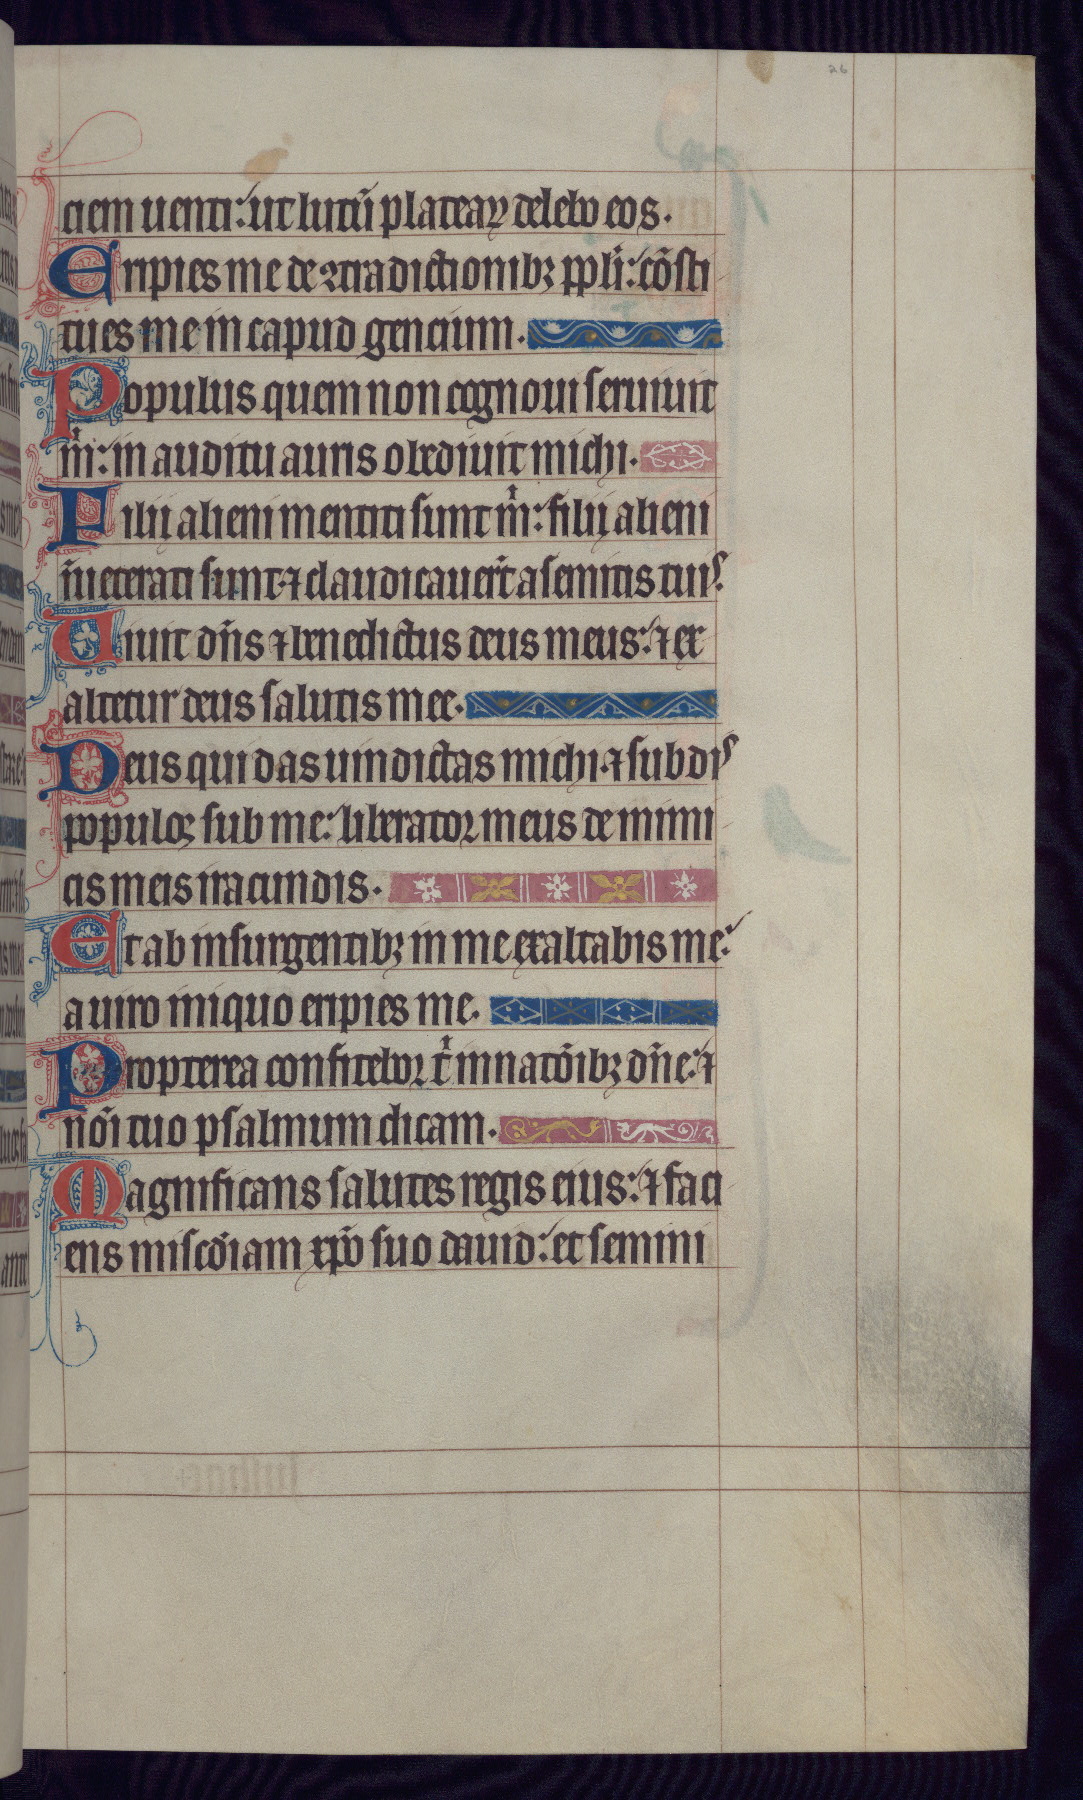 26
ciem uenti: ut lutū plateaꝝ delebo eos.
Eripies me de ꝯtradictionibꝫ ppli: cōsti
tues me in capud gencium.
Populus quem non cognoui seruiuit
m̄: in auditu auris obediuit michi.
Filij alieni mentiti sunt m̄: filij alieni
īueterati sunt ⁊ claudicauert̄ a semitis tuis.
Uiuit dn̄s ⁊ benedictus deus meus: ⁊ ex
altetur deus salutis mee.
Deus qui das uindictas michi ⁊ subdis
populos sub me: liberator meus de inimi
cis meis iracundis.
Et ab insurgentibꝫ in me exaltabis me:
a uiro iniquo eripies me.
Propterea confitebor t̄ in natōibꝫ dn̄e: ⁊
nōi tuo psalmum dicam.
Magnificans salutes regis eius: ⁊ faci
ens miscdiam xp̄o suo dauid: et semini